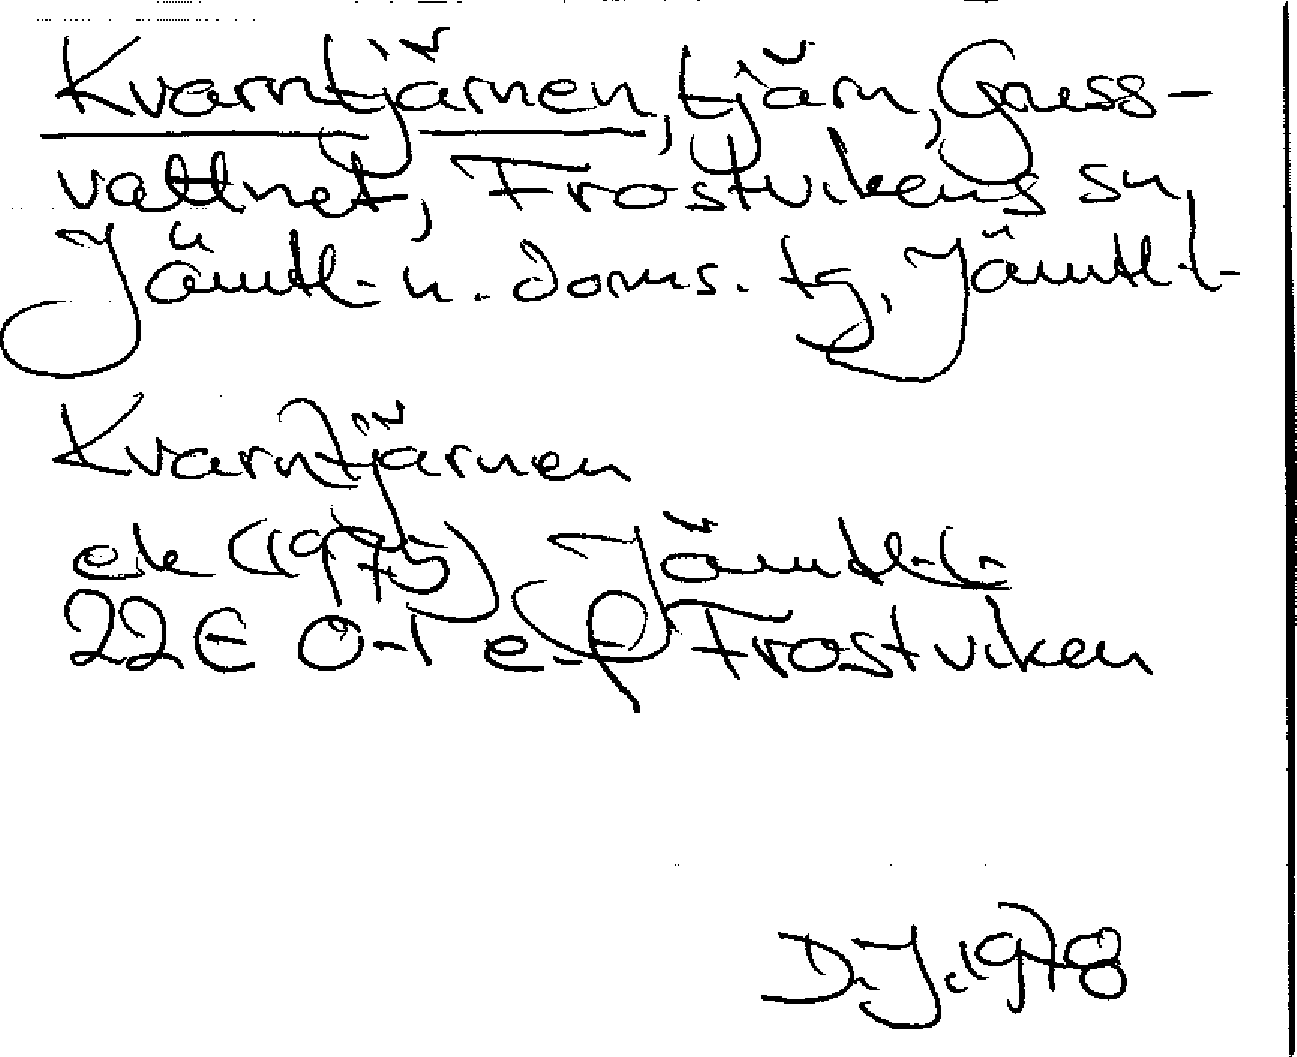 Kvarntjärnen, tjärn, Gauss-
vattnet, Frostvikens sn,
Jämtl. n. doms. tg, Jämtl. l.
Kvarntjärnen
ek (1975) Jämtl. l.
22E 0-1 e-f Frostviken
D.J. 1978